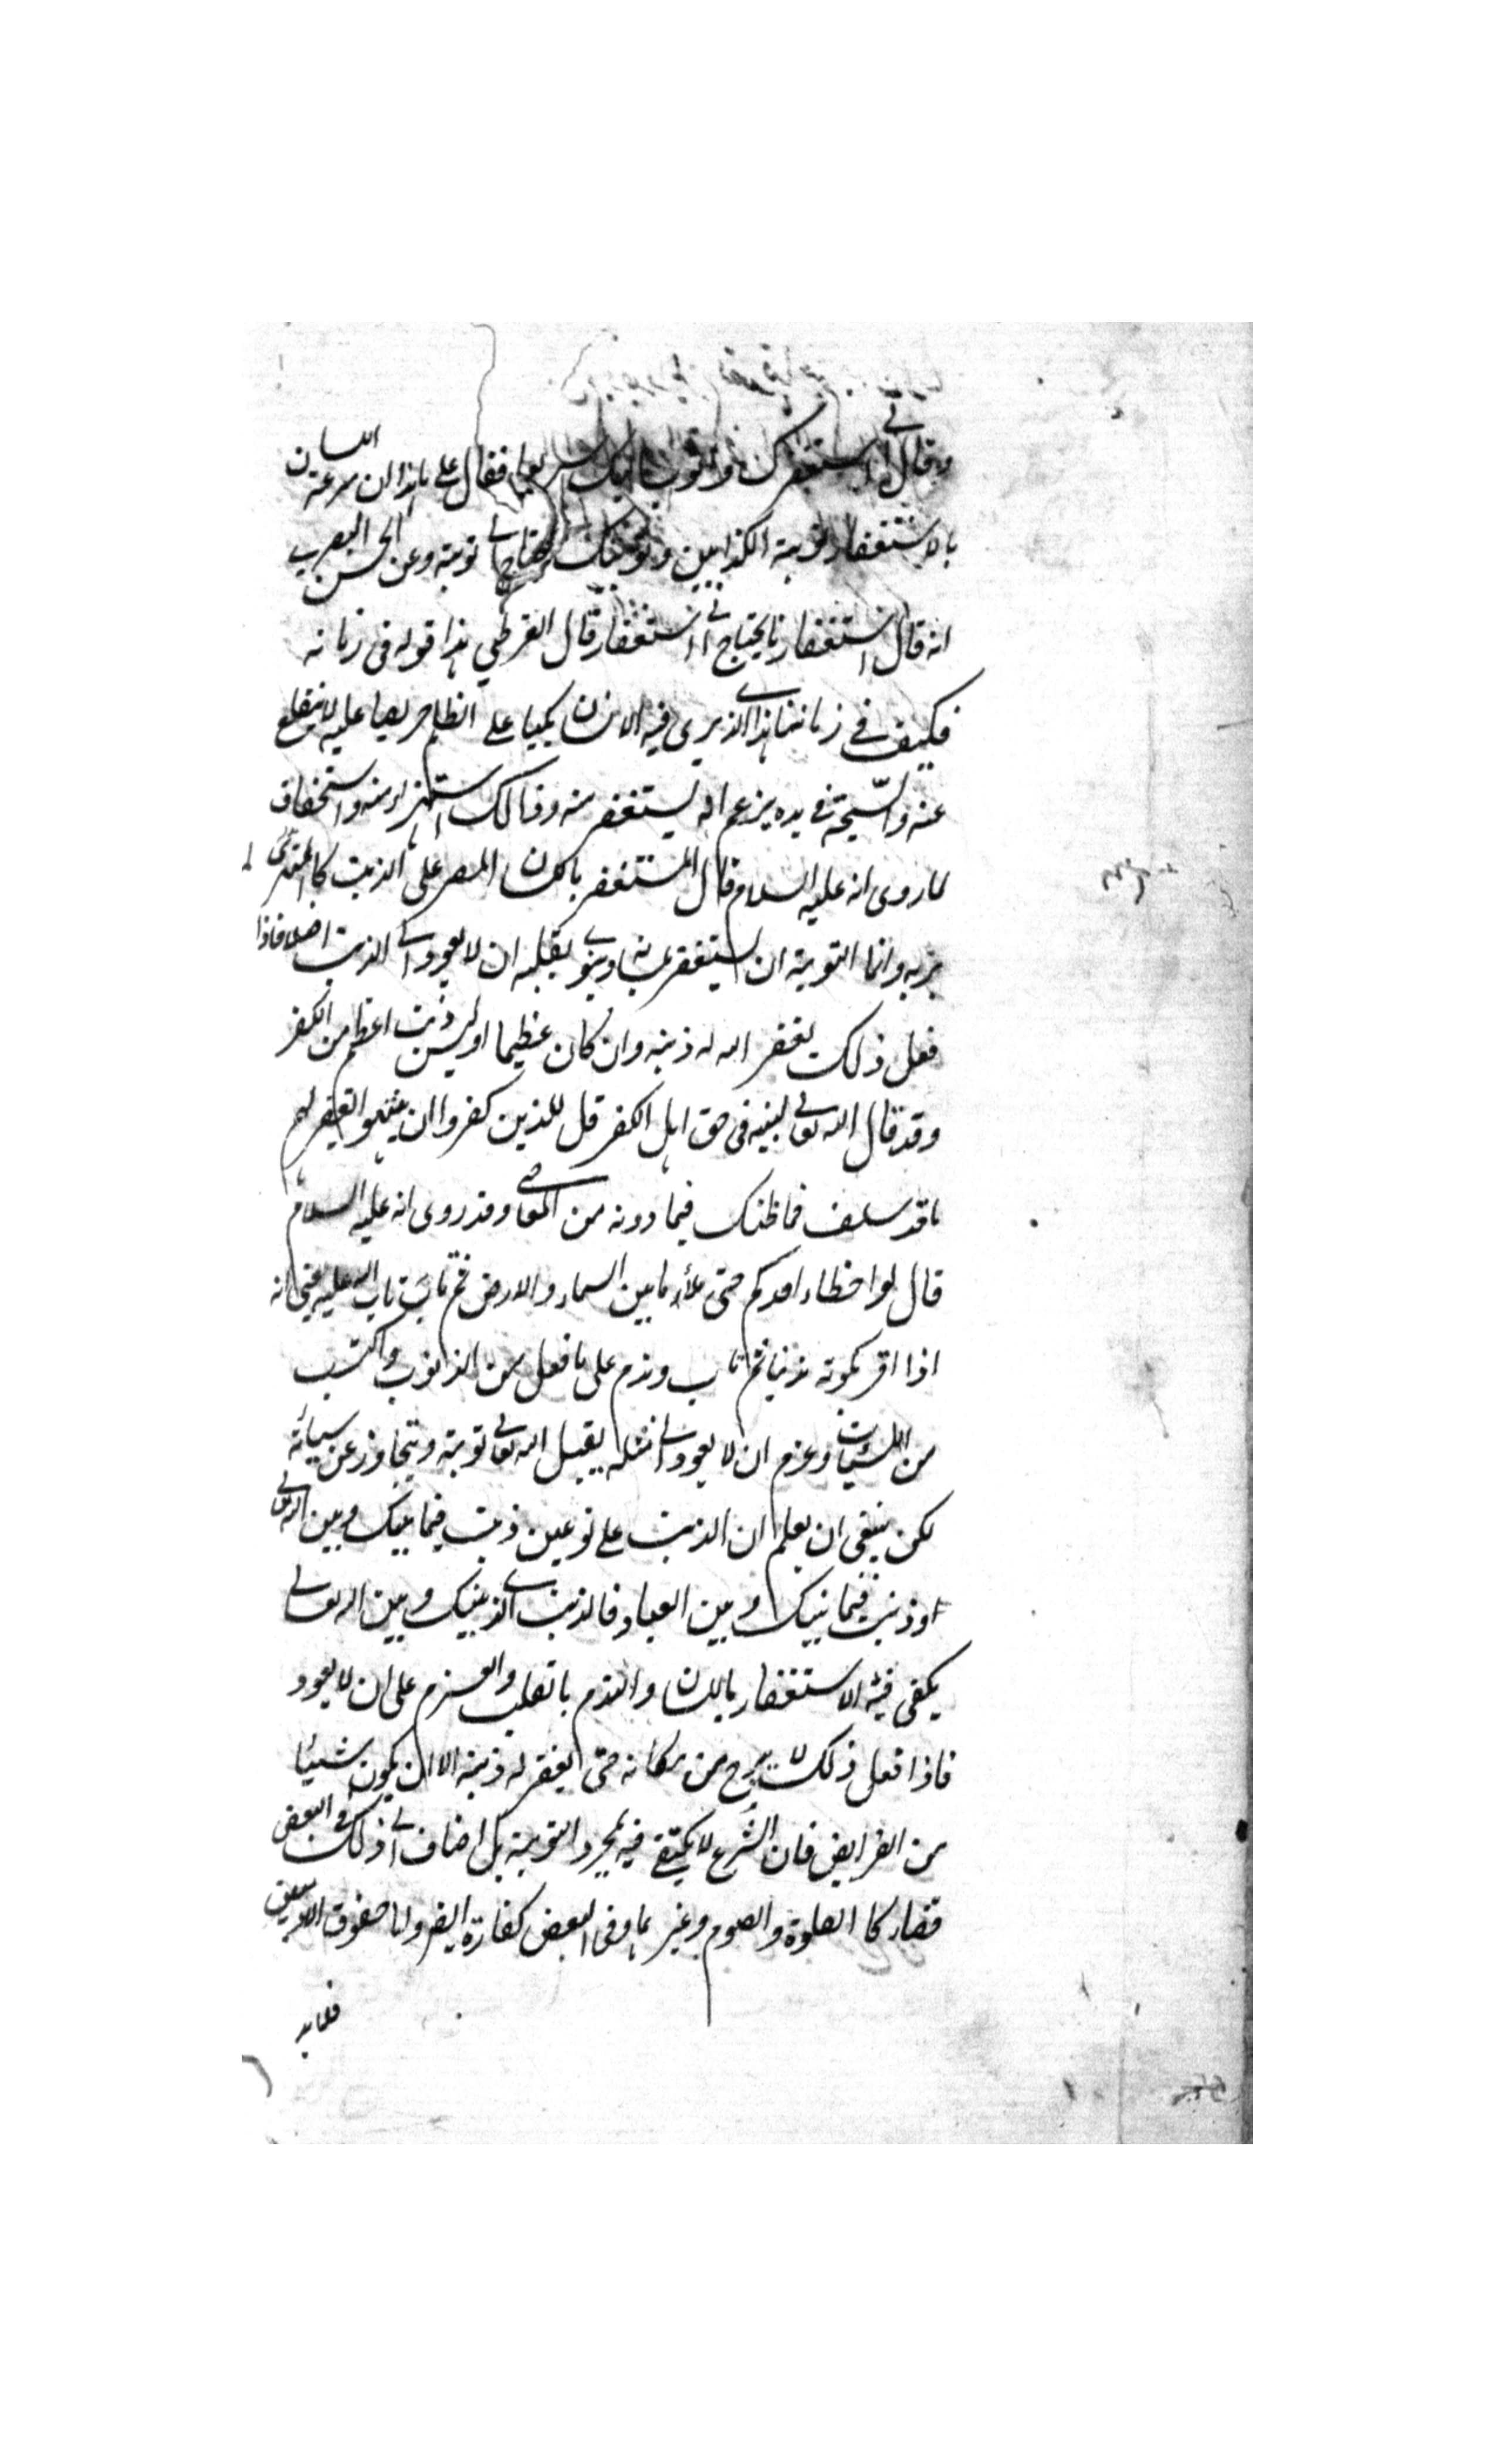 وقال اني استغفرك واتوب اليك سريعا فقال علي يا هذا ان سرعة اللسان
بالاستغفار توبة الكذابين وتوبتك تحتاج الى توبة وعن الحسن البصري
انه قال استغفارنا يحتاج الى استغفار قال القرطبي هذا قوله فى زمانه
فكيف في زماننا هذا الذي يرى فيه الانسان مكبا على الظلم حريصا عليه لا يقلع
عنه والسبحة في يده يزعم انه يستغفر منه وذلك استهزاء منه واستخفاف
لما روى انه عليه السلام قال المستغفر باللسان المصر على الذنب كالمستهزئ
بربه وانما التوبة ان يستغفر بلسانه وينوي بقلبه ان لا يعود الى الذنب اصلا فاذا
فعل ذلك يغفر الله له ذنبه وان كان عظيما اوليس ذنب اعظم من الكفر
وقد قال الله تعالى لنبيه فى حق اهل الكفر قل للذين كفروا ان ينتهوا يغفر لهم
ما قد سلف فما ظنك فيما دونه من المعاصي وقد روى انه عليه السلام
قال لو اخطاء احدكم حتى ملأ ما بين السماء والارض ثم تاب تاب الله عليه يعني انه
اذا اقر بكونه مذنبا ثم تاب وندم على ما فعل من الذنوب واكتسب
من السيئات وعزم ان لا يعود الى مثله يقبل الله تعالى توبته ويتجاوز عن سيأته
لكن ينبغى ان يعلم ان الذنب على نوعين ذنب فيما بينك وبين الله تعالى
اوذنب فيما بينك وبين العباد فالذنب الذي بينك وبين الله تعالى
يكفى فيه الاستغفار باللسان والندم بالقلب والعزم على ان لا يعود
فاذا فعل ذلك لا يبرح من مكانه حتى يغفر له ذنبه الا ان يكون شيئا
من الفرايض فان الشرع لا يكتفي فيه بمجرد التوبة بل اضاف الى ذلك في البعض
قضاء كا الصلوة والصوم وغيرهما وفى البعض كفارة ايضا واما حقوق الادميين
فلابد